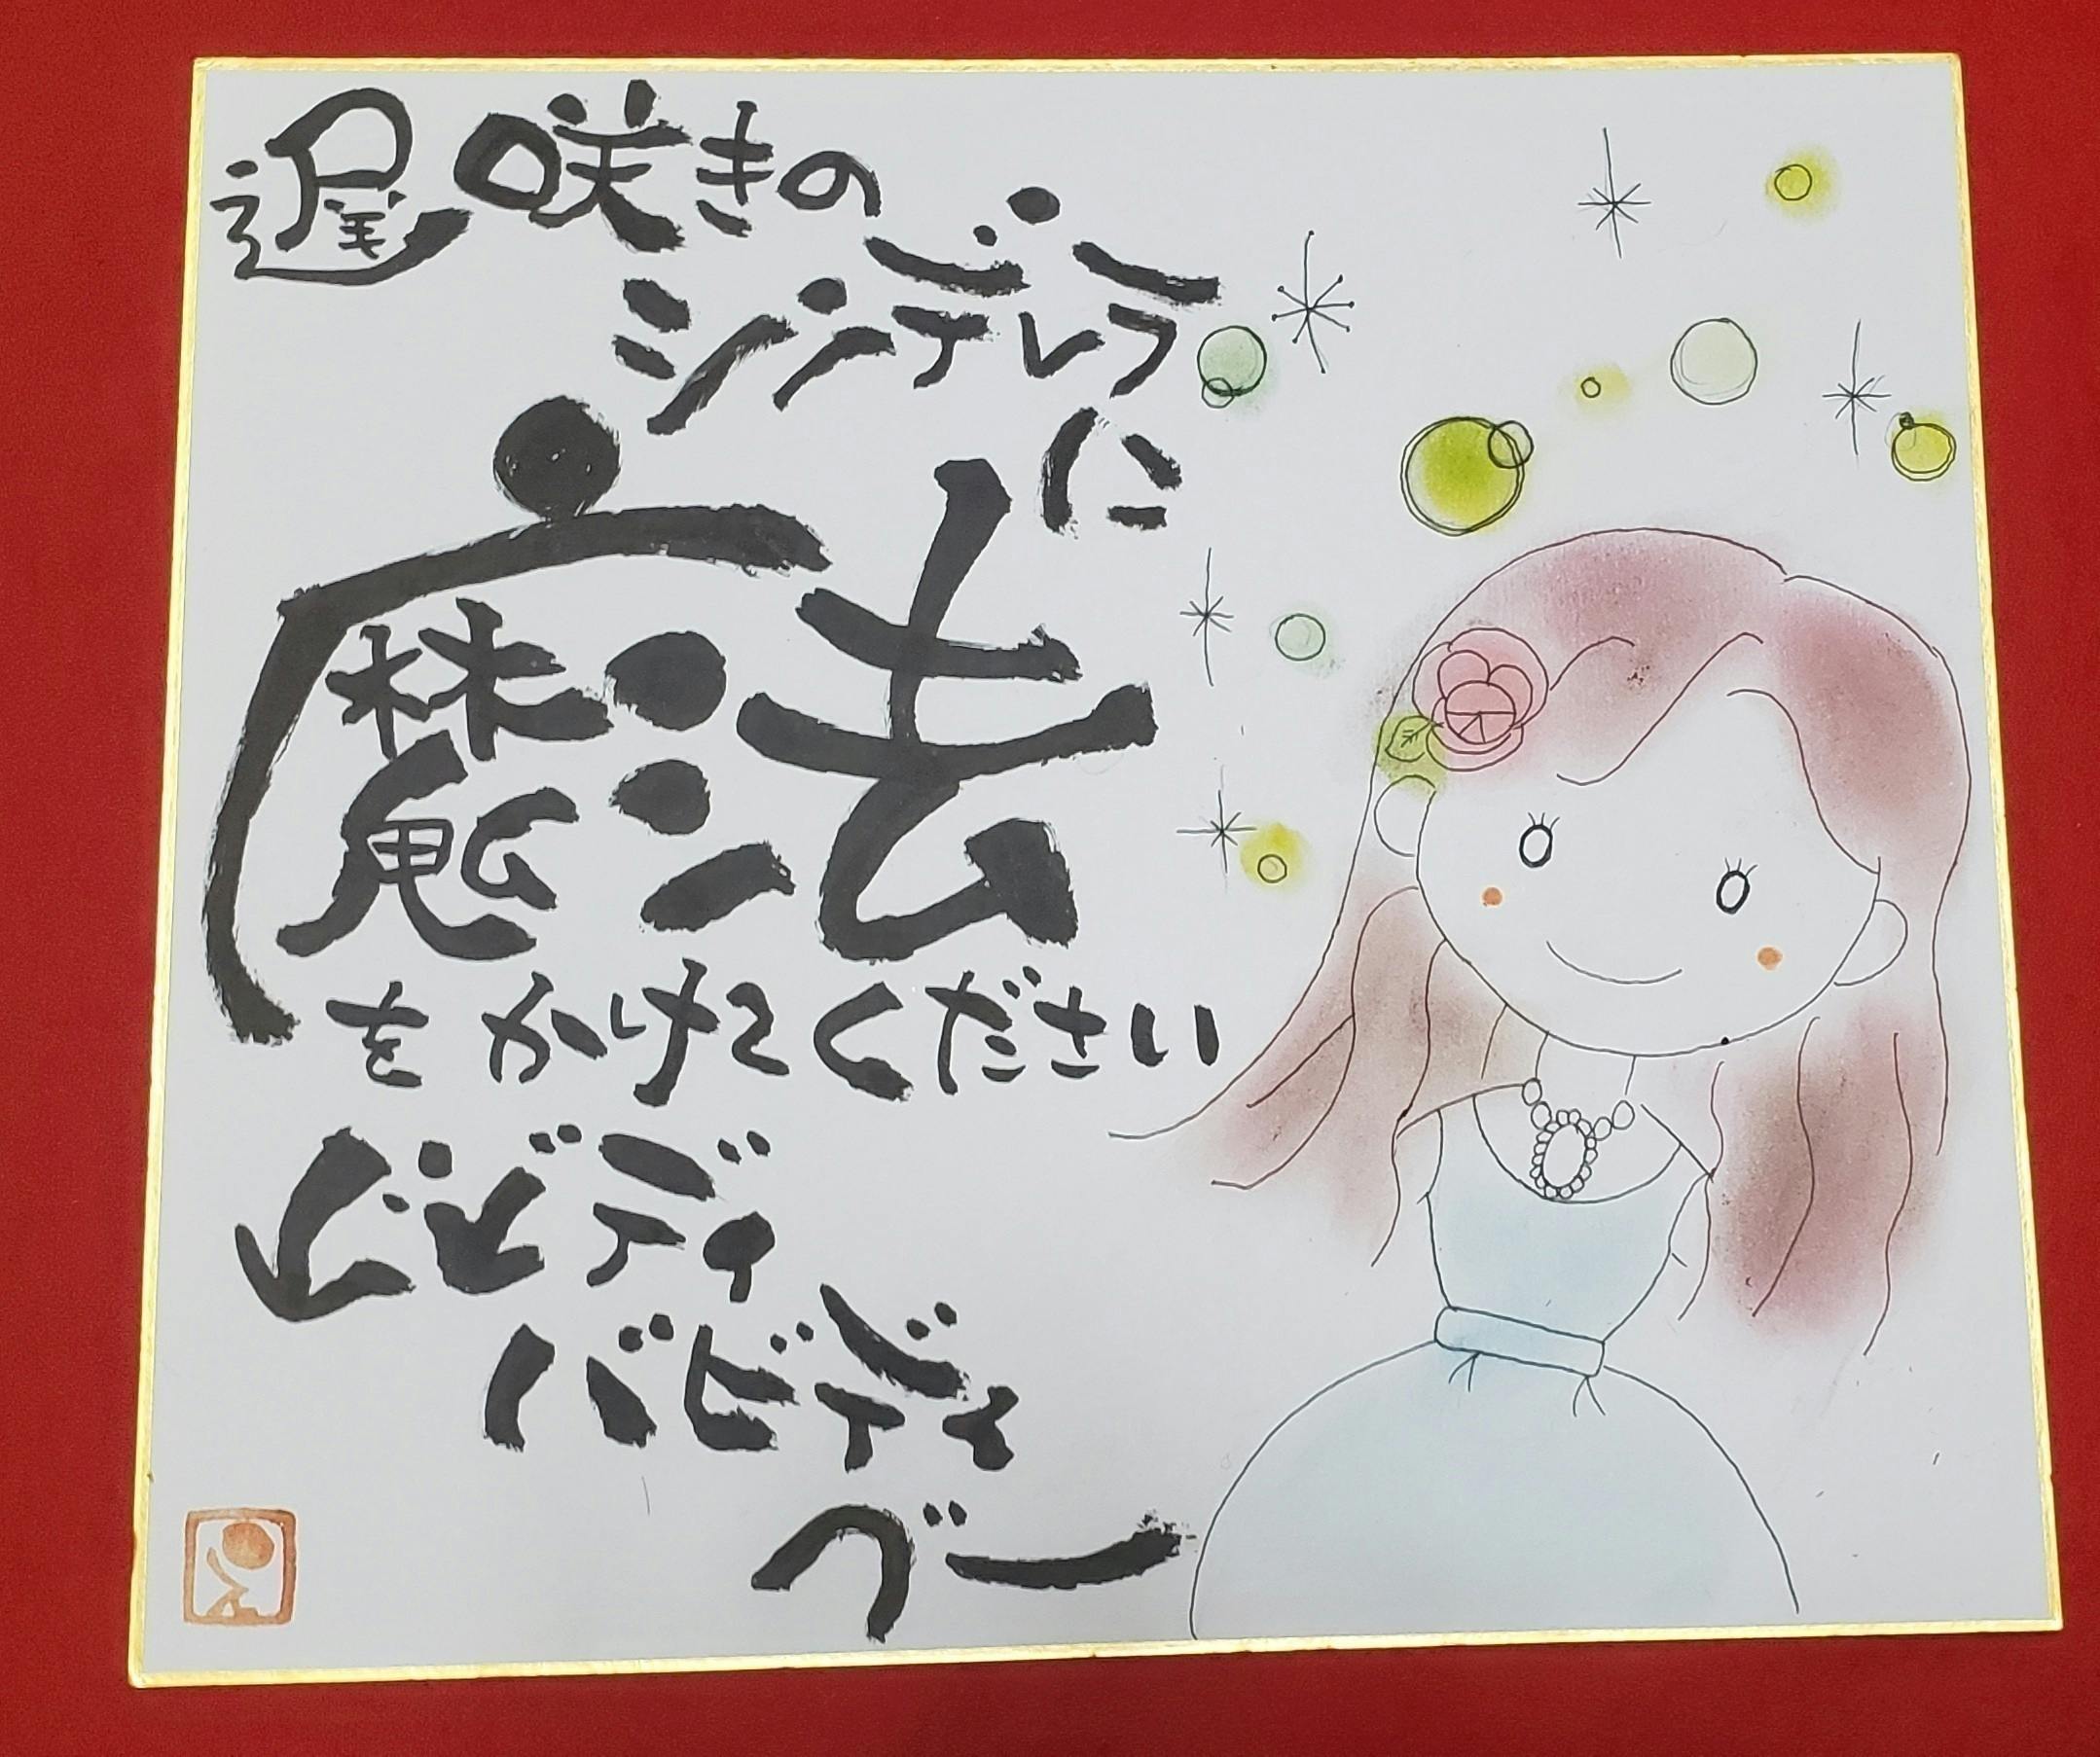 遅咲きの
シンデレラ
に
魔法
をかけてください
ビビディ
バビディ
ブー